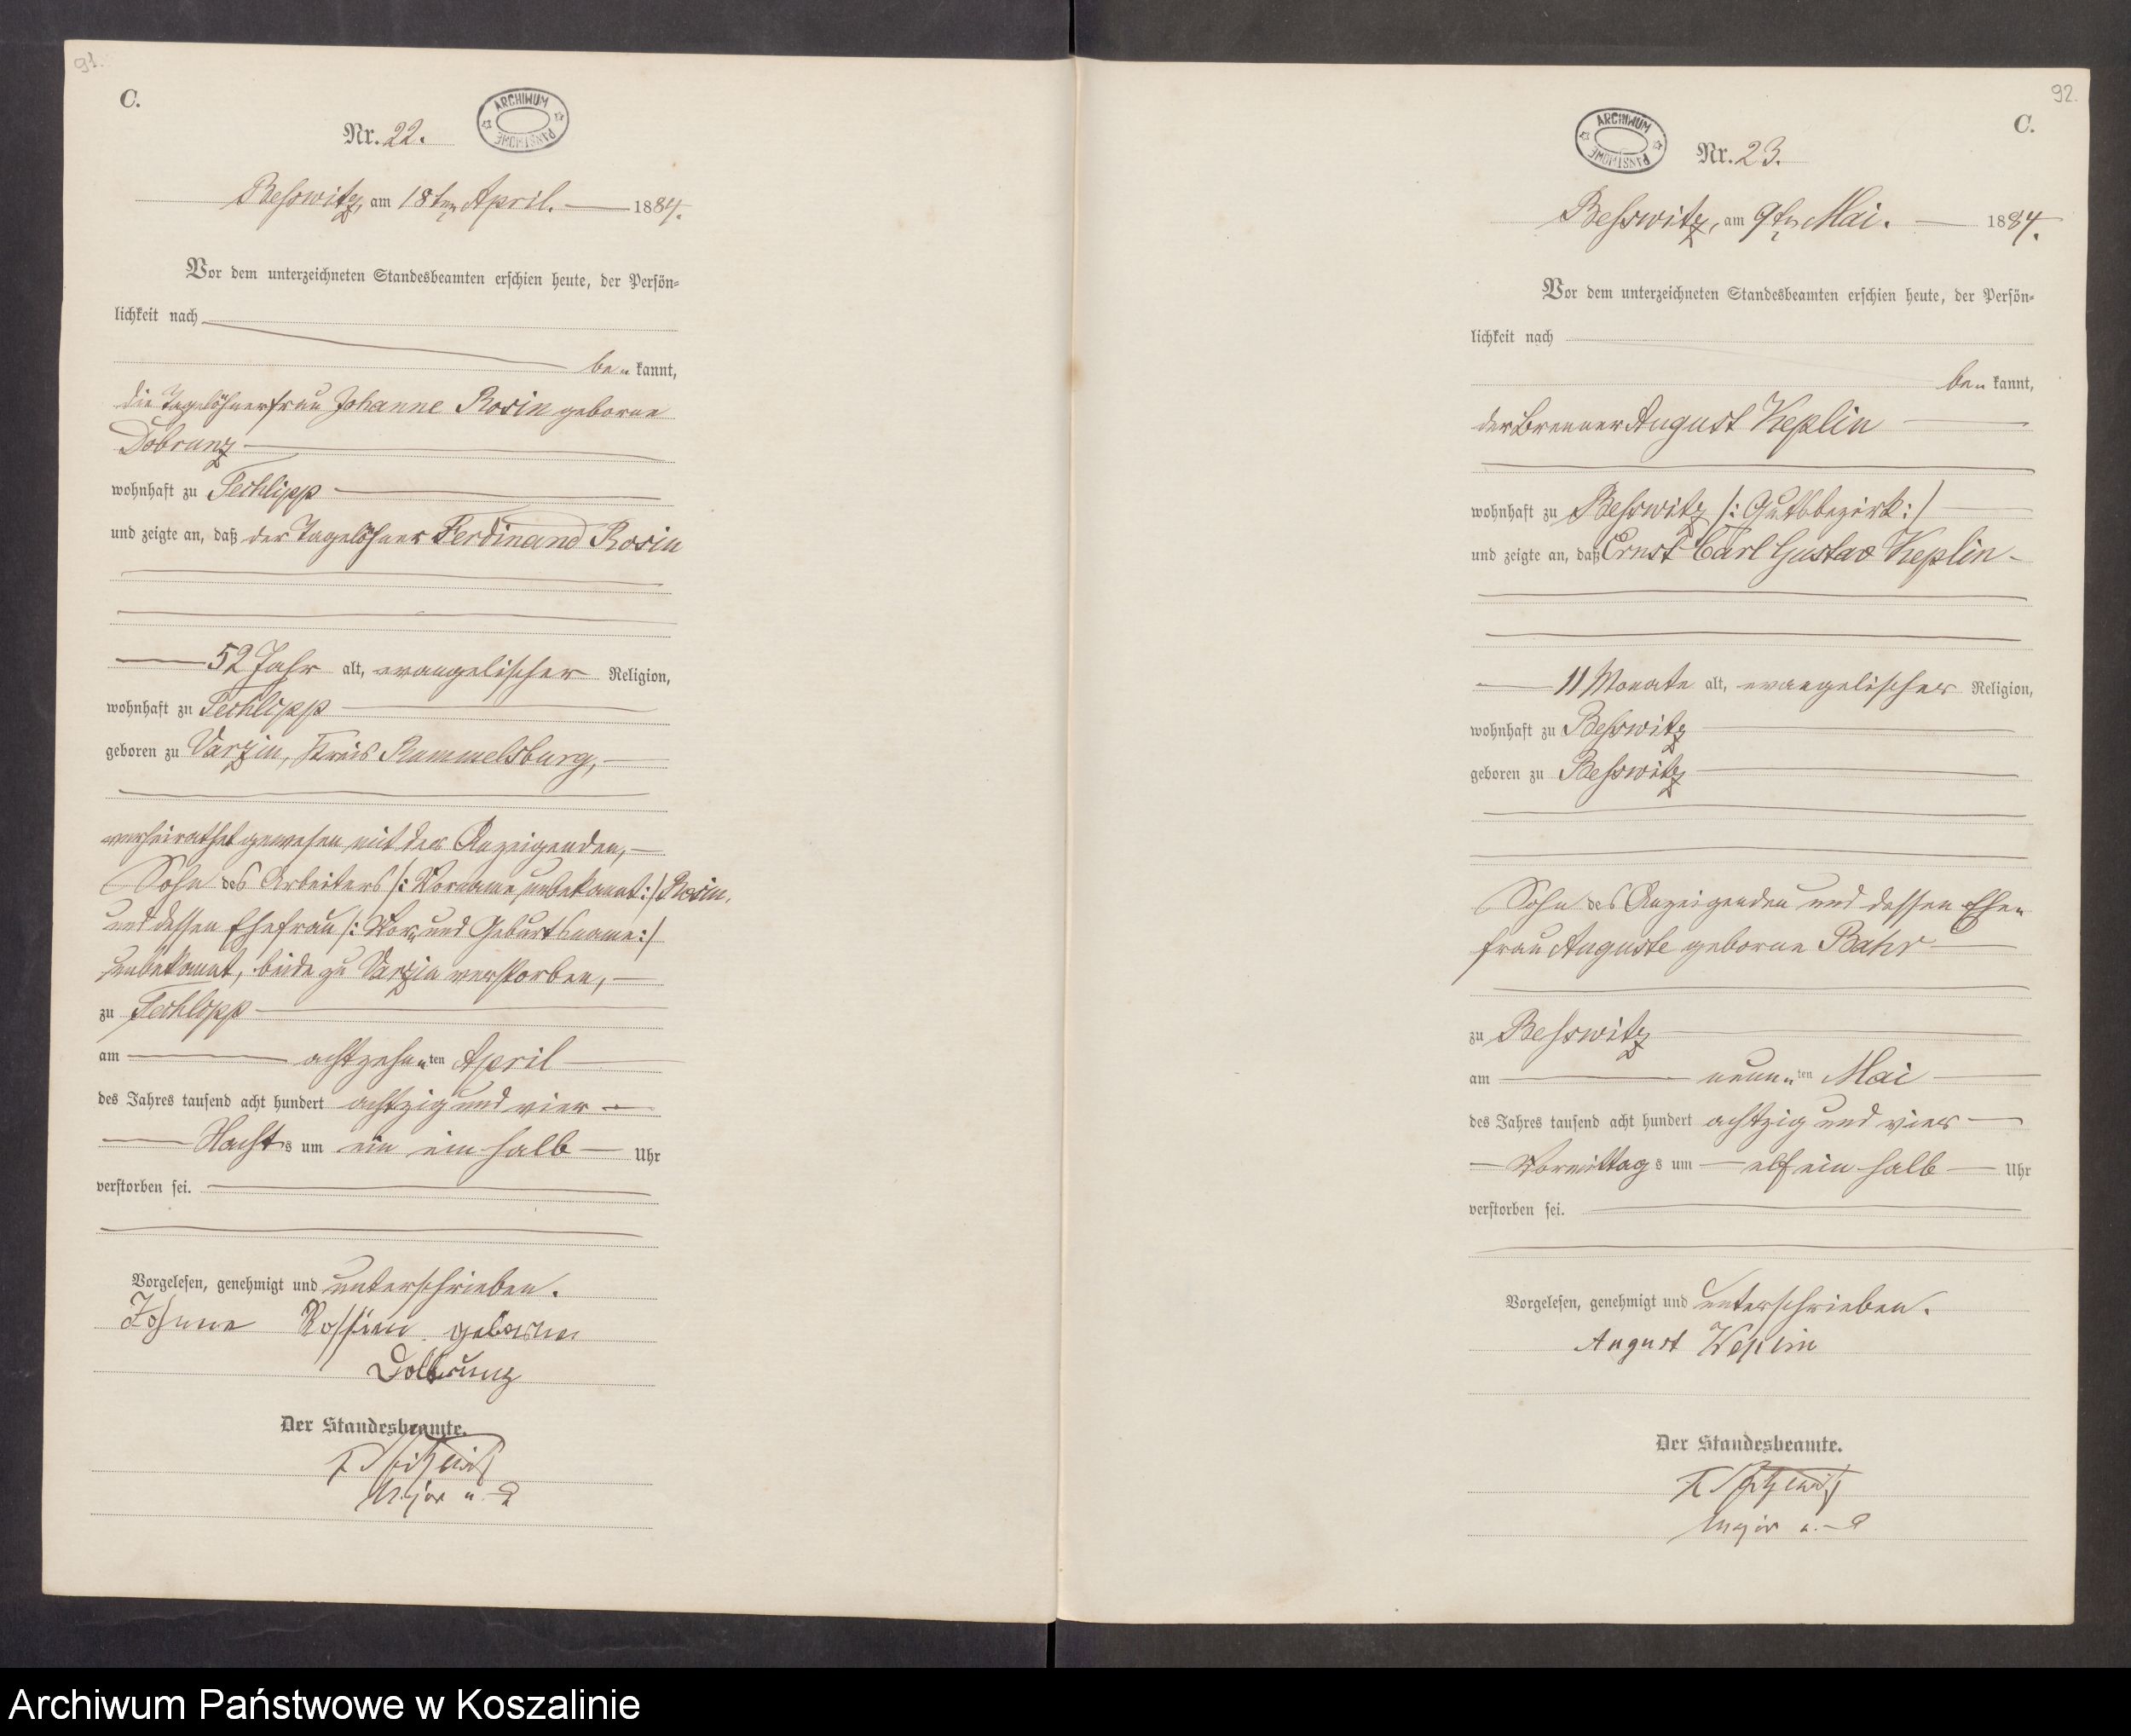 91.
C.
ARCHIWUM PAŃSTWOWE
Nr. 22.
Besswitz, am 18ten April. 1884.
Vor dem unterzeichneten Standesbeamten erschien heute, der Persön-
lichkeit nach
be- kannt,
die Tagelöhnerfrau Johanne Rosin geborne
Dobrunz
wohnhaft zu Techlipp
und zeigte an, daß der Tagelöhner Ferdinand Rosin
52 Jahr alt, evangelischer Religion,
wohnhaft zu Techlipp
geboren zu Varzin, Kreis Rummelsburg,
verheirathet gewesen mit der Anzeigenden,
Sohn des Arbeiters /: Vorname unbekannt :/ Rosin,
und dessen Ehefrau /: Vor- und Geburtsname :/
unbekannt, beide zu Varzin verstorben,
zu Techlipp
am achtzehn-ten April
des Jahres tausend acht hundert achtzig und vier
Nachts um ein ein halb Uhr
verstorben sei.
Vorgelesen, genehmigt und unterschrieben.
Johnne Rossien geborne
Dolbrunz
Der Standesbeamte.
Major a. D
92.
C.
ARCHIWUM PAŃSTWOWE
Nr. 23.
Besswitz, am 9ten Mai. 1884.
Vor dem unterzeichneten Standesbeamten erschien heute, der Persön-
lichkeit nach
be- kannt,
der Brenner August Keplin
wohnhaft zu Besswitz /: Gutsbezirk :/
und zeigte an, daß Ernst Carl Gustav Keplin
11 Monate alt, evangelischer Religion,
wohnhaft zu Besswitz
geboren zu Besswitz
Sohn des Anzeigenden und dessen Ehe-
frau Auguste geborne Bahr
zu Besswitz
am neun-ten Mai
des Jahres tausend acht hundert achtzig und vier
Vormittags um elf ein halb Uhr
verstorben sei.
Vorgelesen, genehmigt und unterschrieben.
August Keplin
Der Standesbeamte.
Major a. D
Archiwum Państwowe w Koszalinie